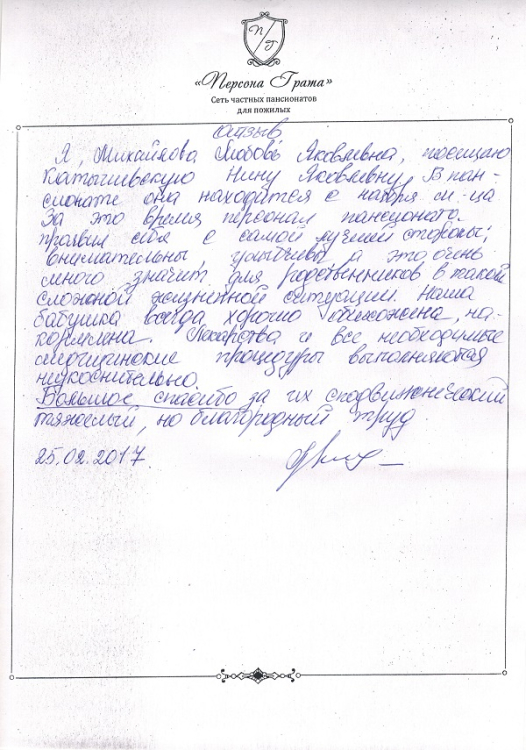 П Г
«Персона Грата»
Сеть частных пансионатов
для пожилых
Отзыв
Я, Михайлова Любовь Яковлевна, посещаю
Катышевскую Нину Яковлевну. В пан-
сионате она находится с ноября м-ца
За это время персонал пансионата
проявил себя с самой лучшей стороны;
внимательны, улыбчивы, а это очень
много значит для родственников в такой
сложной жизненной ситуации. Наша
бабушка всегда хорошо обихожена, на-
кормлена. Лекарства и все необходимые
медицинские процедуры выполняются
неукоснительно.
Большое спасибо за их сподвижнический
тяжелый, но благородный труд
25.02.2017.